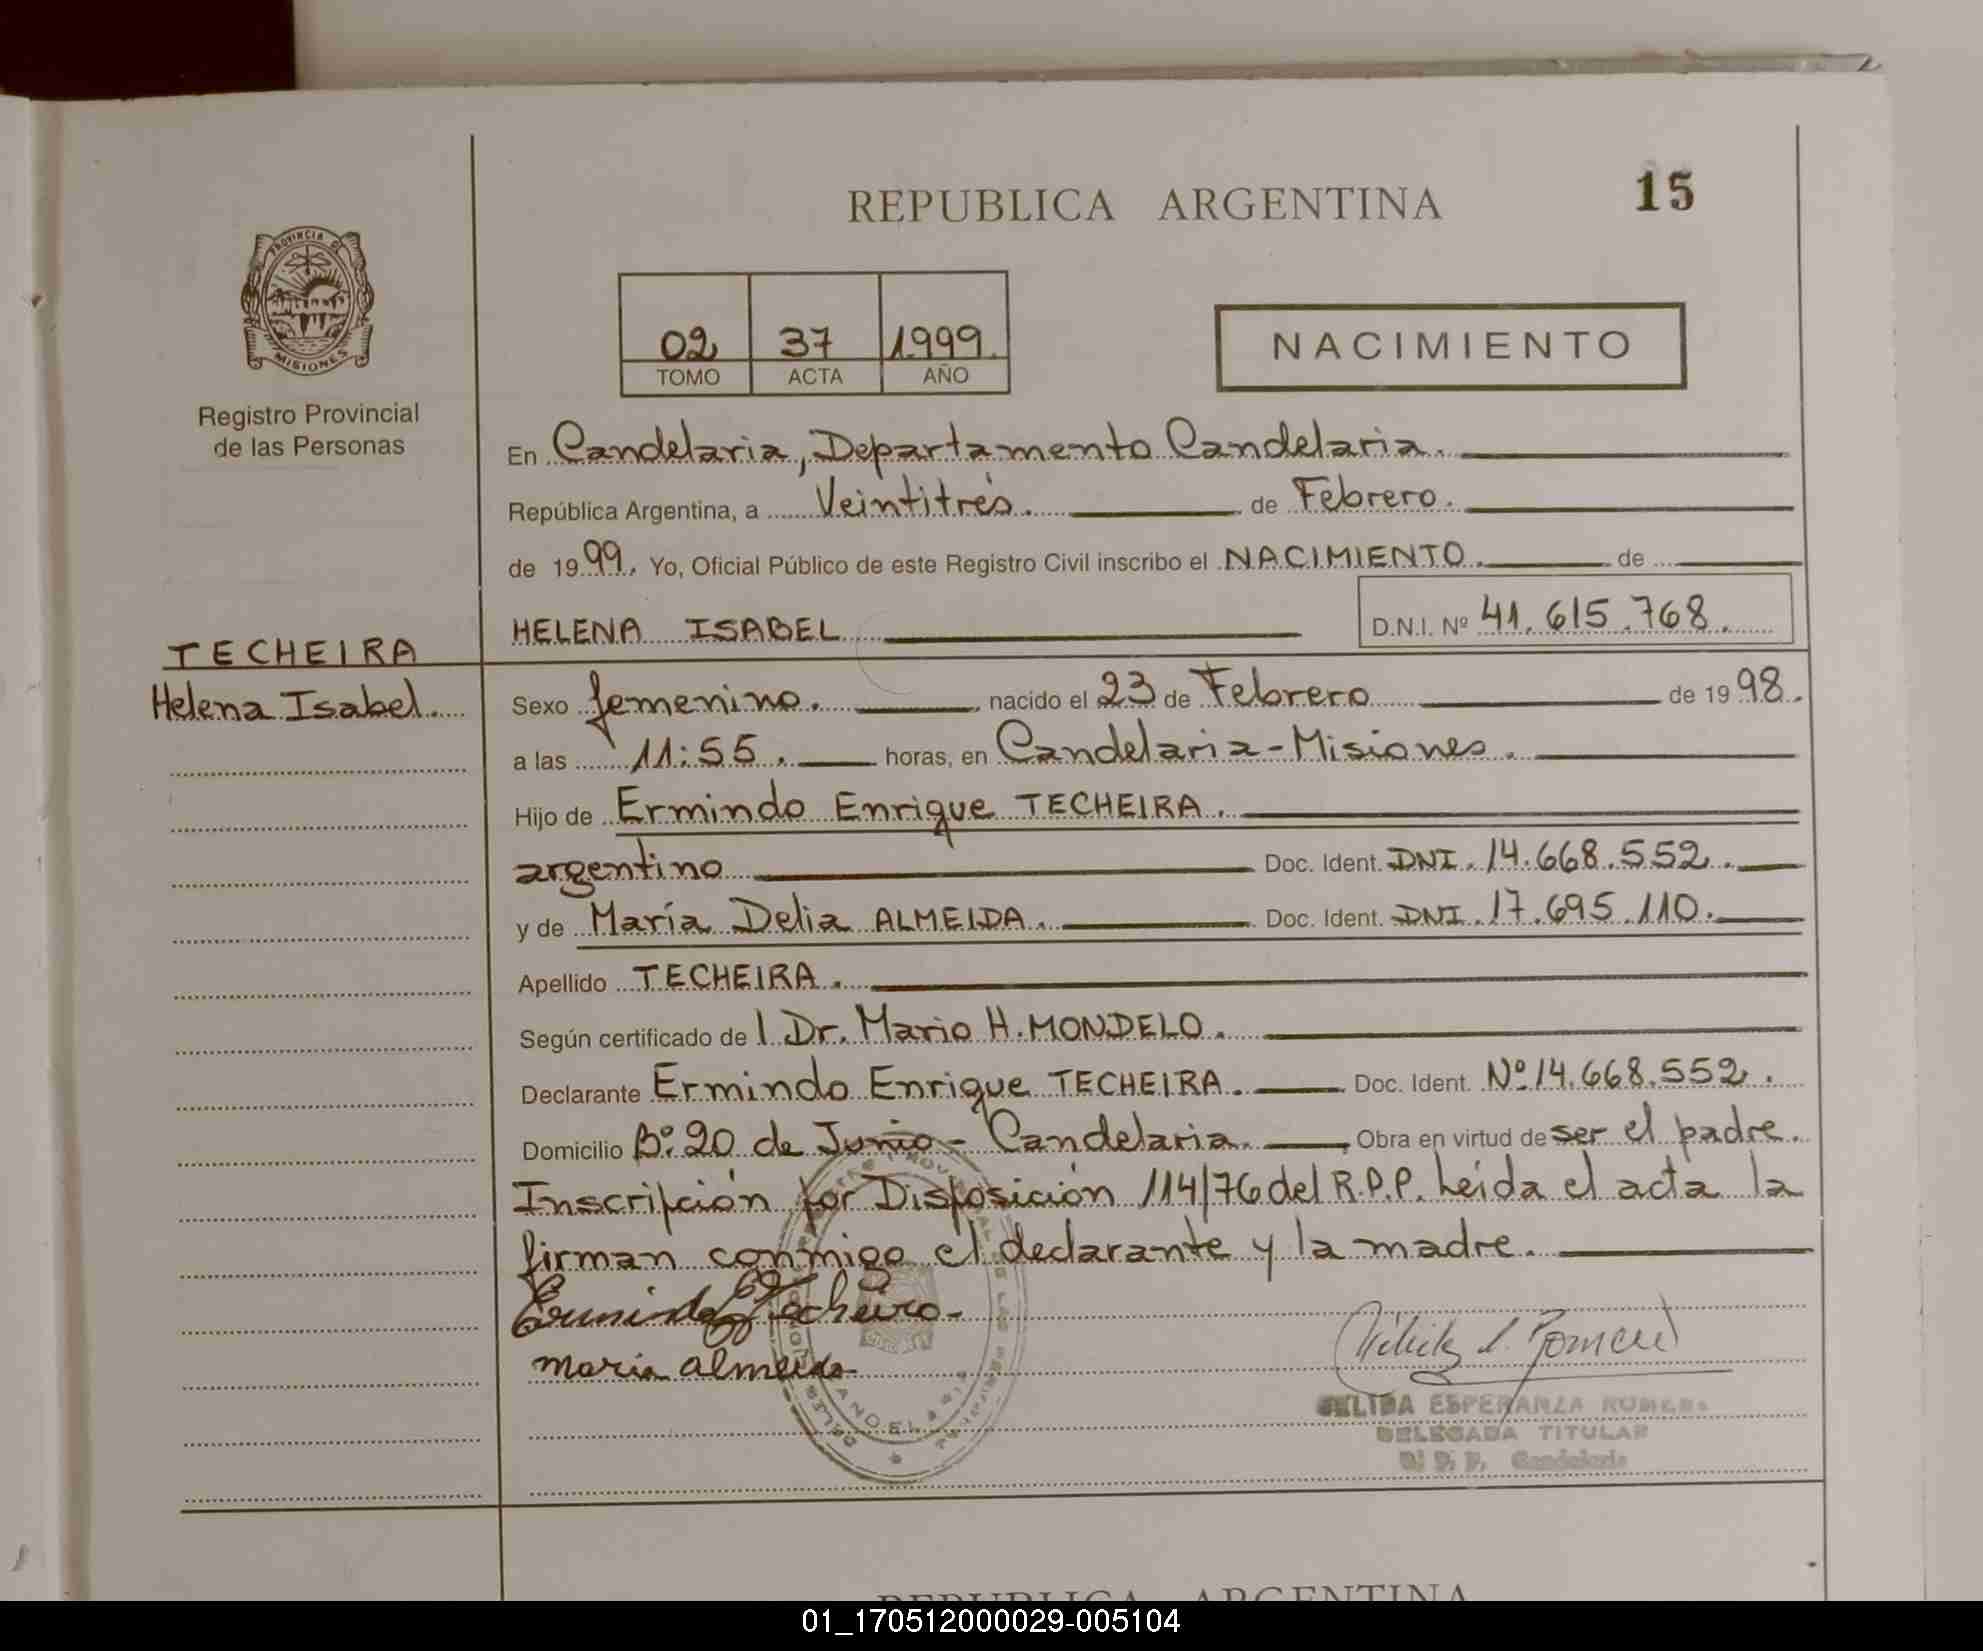 REPUBLICA ARGENTINA
15
PROVINCIA DE
MISIONES
Registro Provincial
de las Personas
02 37 1999
TOMO ACTA AÑO
NACIMIENTO
En Candelaria, Departamento Candelaria.
República Argentina, a Veintitrés. de Febrero.
de 1999. Yo, Oficial Público de este Registro Civil inscribo el NACIMIENTO. de
HELENA ISABEL D.N.I. Nº 41.615.768.
TECHEIRA
Helena Isabel.
Sexo femenino. , nacido el 23 de Febrero de 1998.
a las 11:55. horas, en Candelaria-Misiones.
Hijo de Ermindo Enrique TECHEIRA.
argentino Doc. Ident. DNI. 14.668.552.
y de María Delia ALMEIDA. Doc. Ident. DNI. 17.695.110.
Apellido TECHEIRA.
Según certificado de l Dr. Mario H. MONDELO.
Declarante Ermindo Enrique TECHEIRA. Doc. Ident. Nº 14.668.552.
Domicilio Bº. 20 de Junio - Candelaria. , Obra en virtud de ser el padre.
Inscripción por Disposición 114/76 del R.P.P. Leída el acta la
firman conmigo el declarante y la madre.
Ermindo E Techeira
maria almeida
CANDELARIA
ESPERANZA ROMERO
DELEGADA TITULAR
R. P. P. Candelaria
REPUBLICA ARGENTINA
01_170512000029-005104